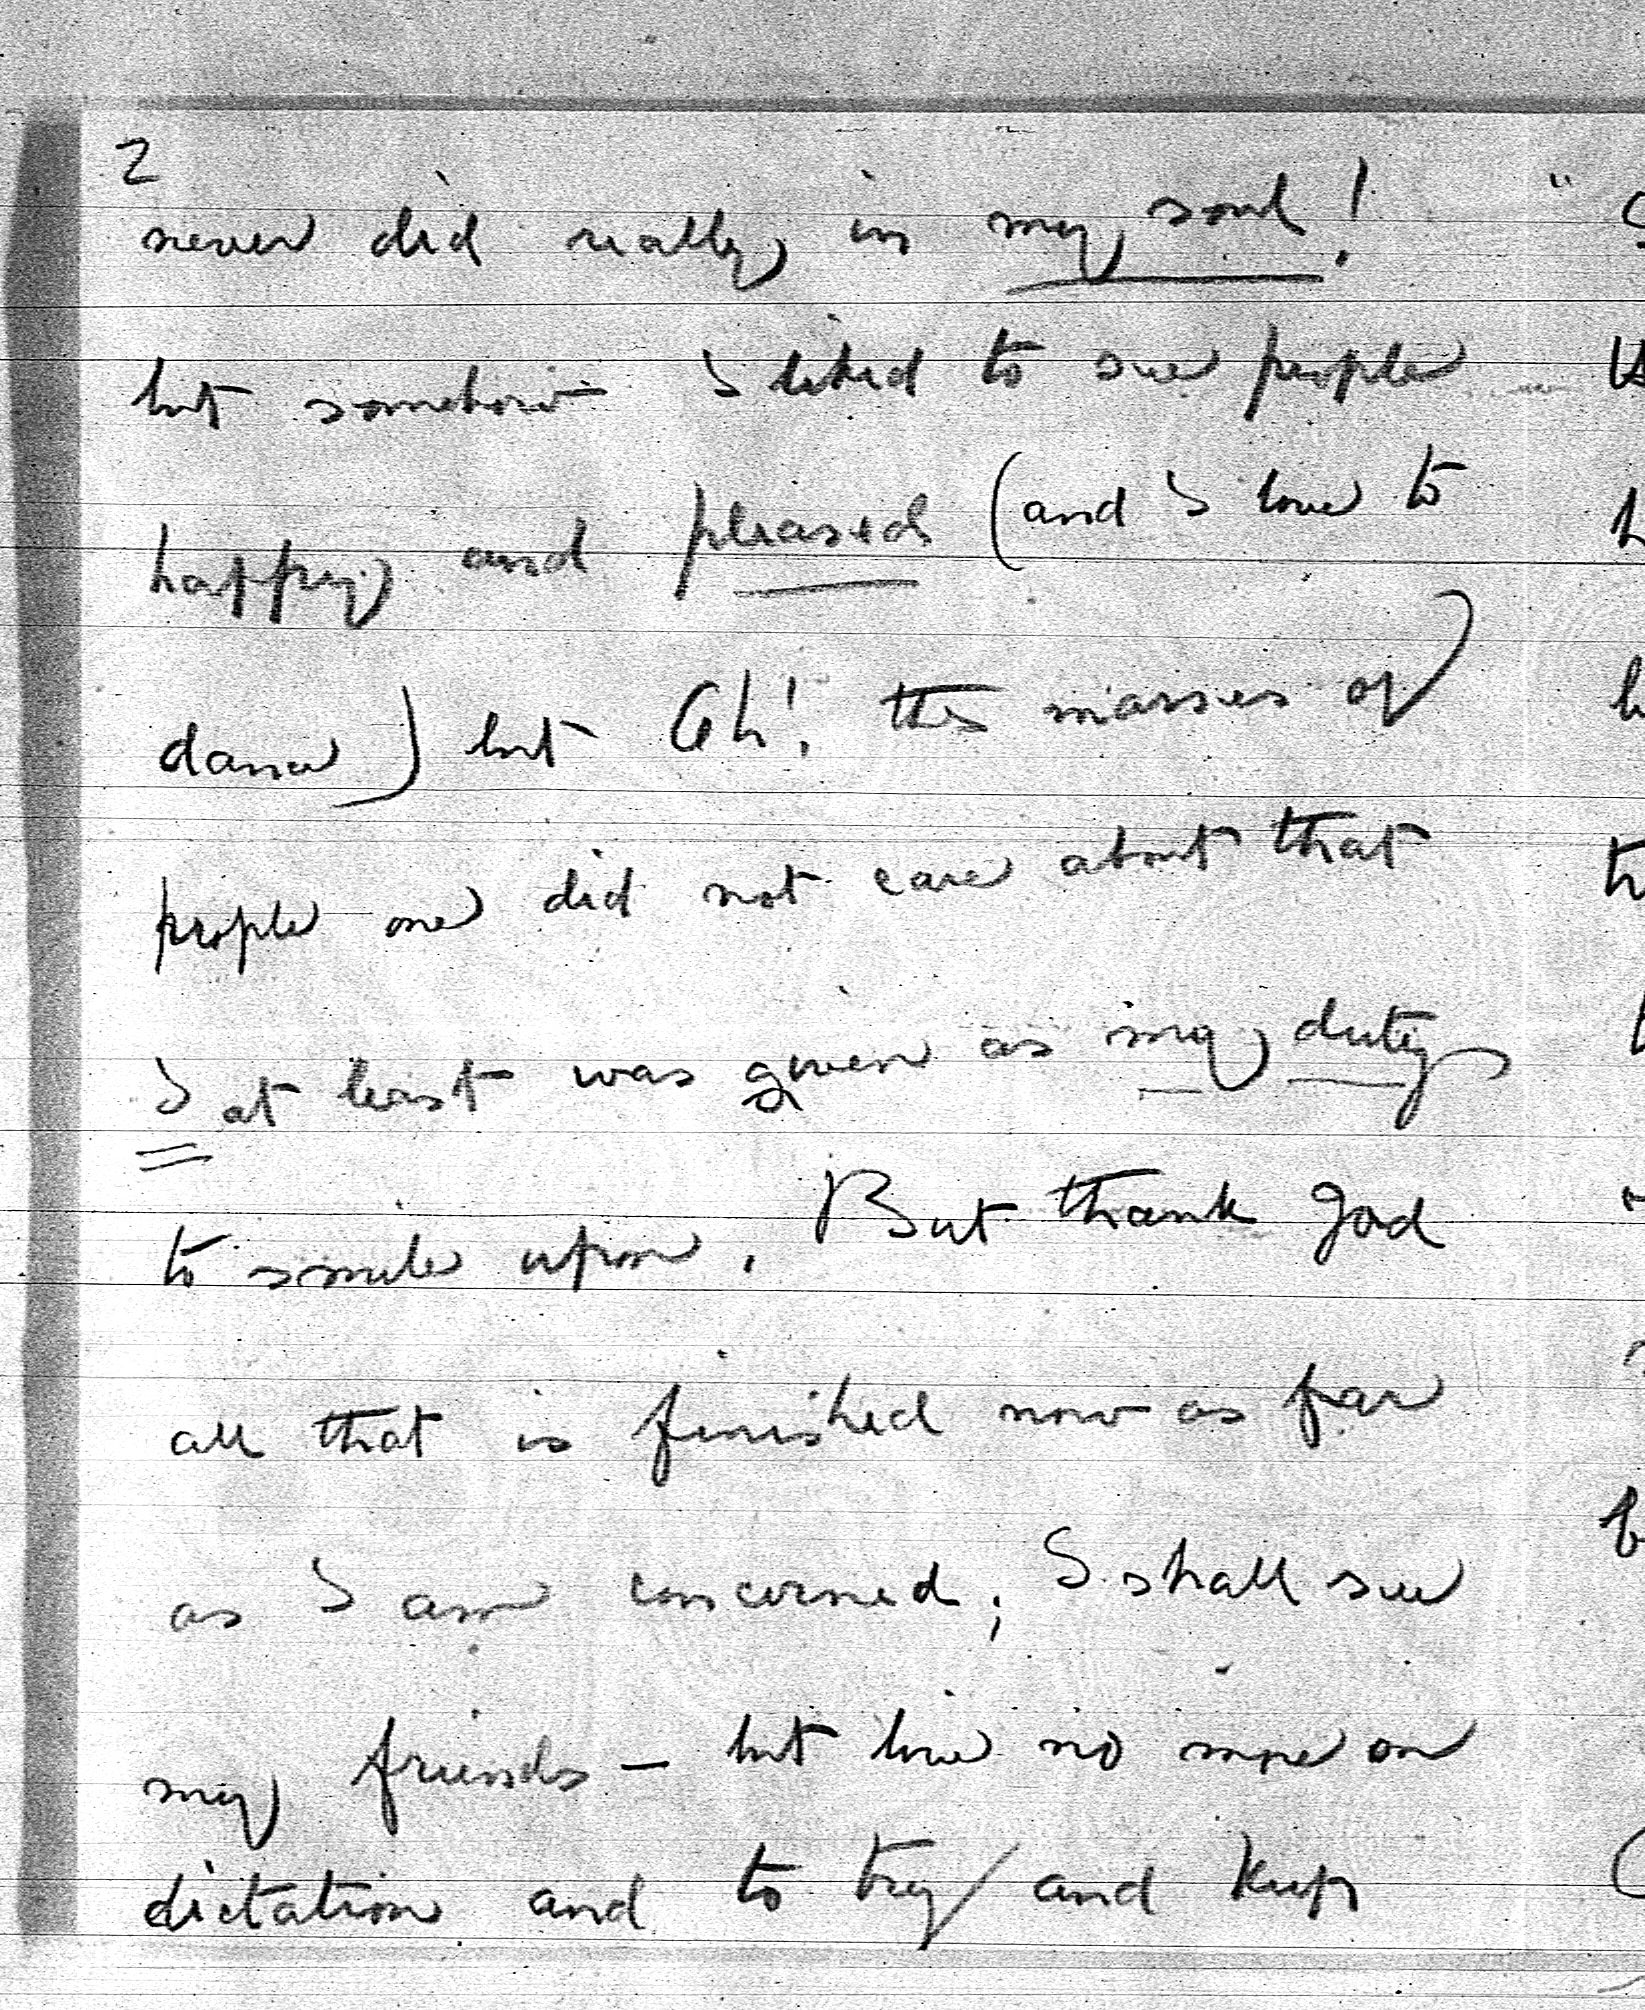 2
never did really in my soul!
but somehow I liked to see people
happy and pleased (and I love to
dance) but Ah! the masses of
people one did not care about that
I at least was given as my duty
to smile upon. But thank God
all that is finished now as far
as I am concerned; I shall see
my friends – but live no more on
dictation and to try and keep